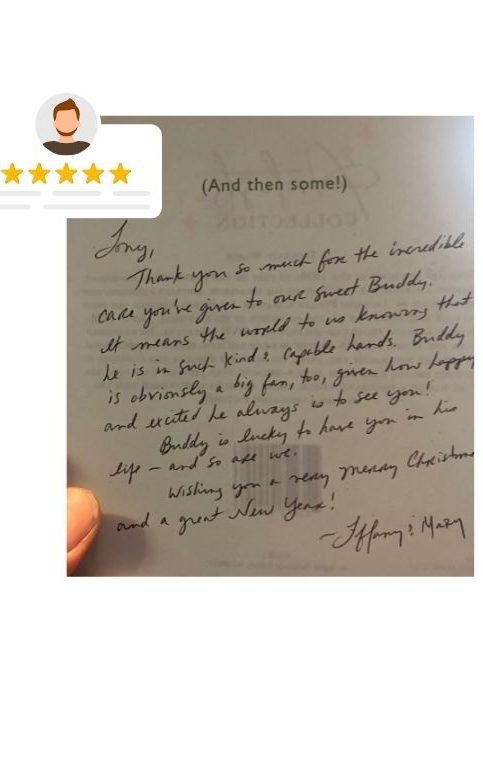 (And then some!)
COLLECTION
Tony,
Thank you so much for the incredible
care you've given to our sweet Buddy.
It means the world to us knowing that
he is in such kind & capable hands. Buddy
is obviously a big fan, too, given how happy
and excited he always is to see you!
Buddy is lucky to have you in his
life – and so are we.
Wishing you a very merry Christma
and a great New Year!
– Tiffany & Mary